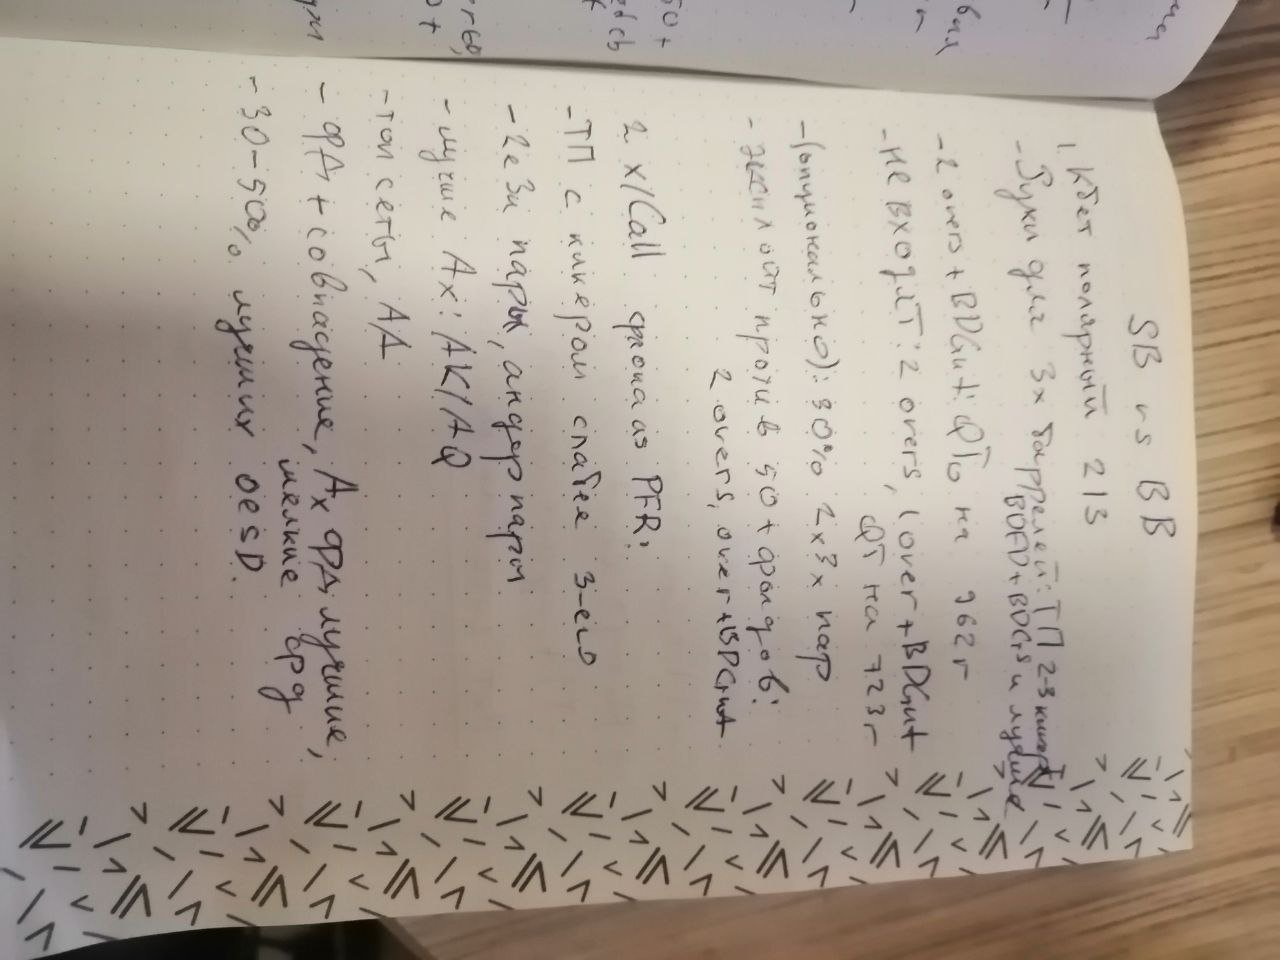 SB vs BB
1. Кбет полярный 2/3
- Руки для 3х баррелей: ТП 2-3 кикер
BDFD + BDG's и лучше
- 2 overs + BDGut: QTo на 962r
- не входят: 2 overs, 1over + BDGut
QT на 723r
- (опционально): 30% 2х3х пар
- эксплойт против 50+ фолдов:
2 overs, over + BDGut
2 x/Call флопа as PFR,
- ТП с кикером слабее 3-его
- 2е 3и пары, андерпары
- лучшие Ax: AK/AQ
- топ сеты, AA
- ФД + совпадение, Ax ФД лучшие,
мелкие фд
- 30-50% лучших OESD